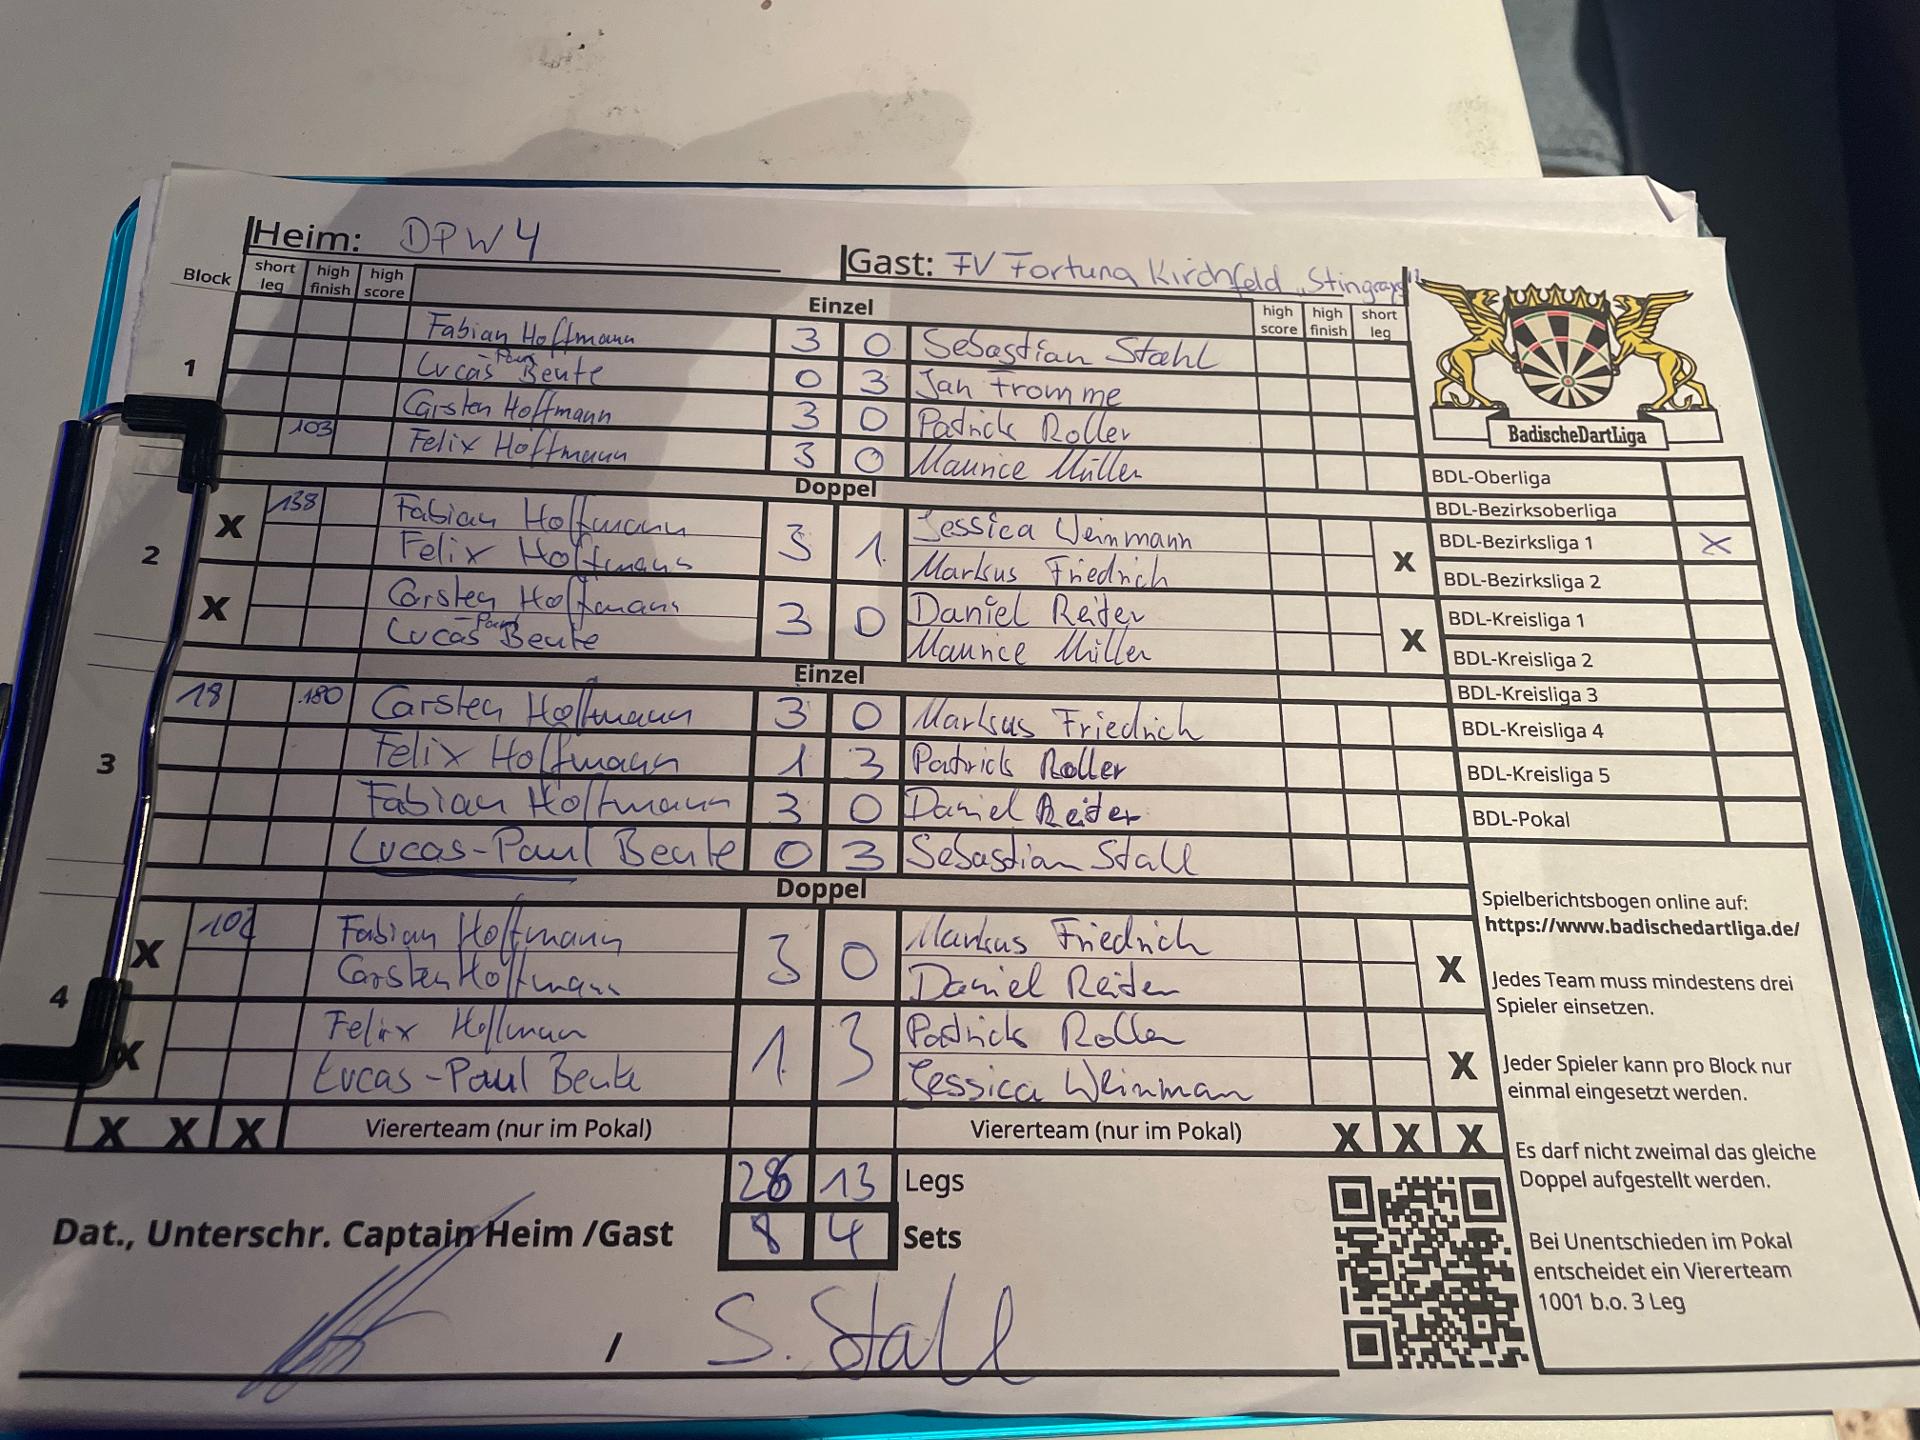 Heim: DPW4
Gast: FV Fortuna Kirchfeld "Stingrays"
Block short leg high finish high score Einzel high score high finish short leg
1
Fabian Hoffmann 3 0 Sebastian Stahl
Lucas-Paul Beute 0 3 Jan Fromme
Carsten Hoffmann 3 0 Patrick Roller
103 Felix Hoffmann 3 0 Maurice Müller
Doppel
2
X 138 Fabian Hoffmann 3 1 Jessica Weinmann X
Felix Hoffmann Markus Friedrich
X Carsten Hoffmann 3 0 Daniel Reiter X
Lucas-Paul Beute Maurice Müller
Einzel
3
18 180 Carsten Hoffmann 3 0 Markus Friedrich
Felix Hoffmann 1 3 Patrick Roller
Fabian Hoffmann 3 0 Daniel Reiter
Lucas-Paul Beute 0 3 Sebastian Stall
Doppel
4
X 102 Fabian Hoffmann 3 0 Markus Friedrich X
Carsten Hoffmann Daniel Reiter
X Felix Hoffmann 1 3 Patrick Roller X
Lucas-Paul Beute Jessica Weinman
X X X Viererteam (nur im Pokal) Viererteam (nur im Pokal) X X X
26 13 Legs
8 4 Sets
Dat., Unterschr. Captain Heim /Gast
/ S. Stall
BadischeDartLiga
BDL-Oberliga
BDL-Bezirksoberliga
BDL-Bezirksliga 1 X
BDL-Bezirksliga 2
BDL-Kreisliga 1
BDL-Kreisliga 2
BDL-Kreisliga 3
BDL-Kreisliga 4
BDL-Kreisliga 5
BDL-Pokal
Spielberichtsbogen online auf:
https://www.badischedartliga.de/
Jedes Team muss mindestens drei
Spieler einsetzen.
Jeder Spieler kann pro Block nur
einmal eingesetzt werden.
Es darf nicht zweimal das gleiche
Doppel aufgestellt werden.
Bei Unentschieden im Pokal
entscheidet ein Viererteam
1001 b.o. 3 Leg